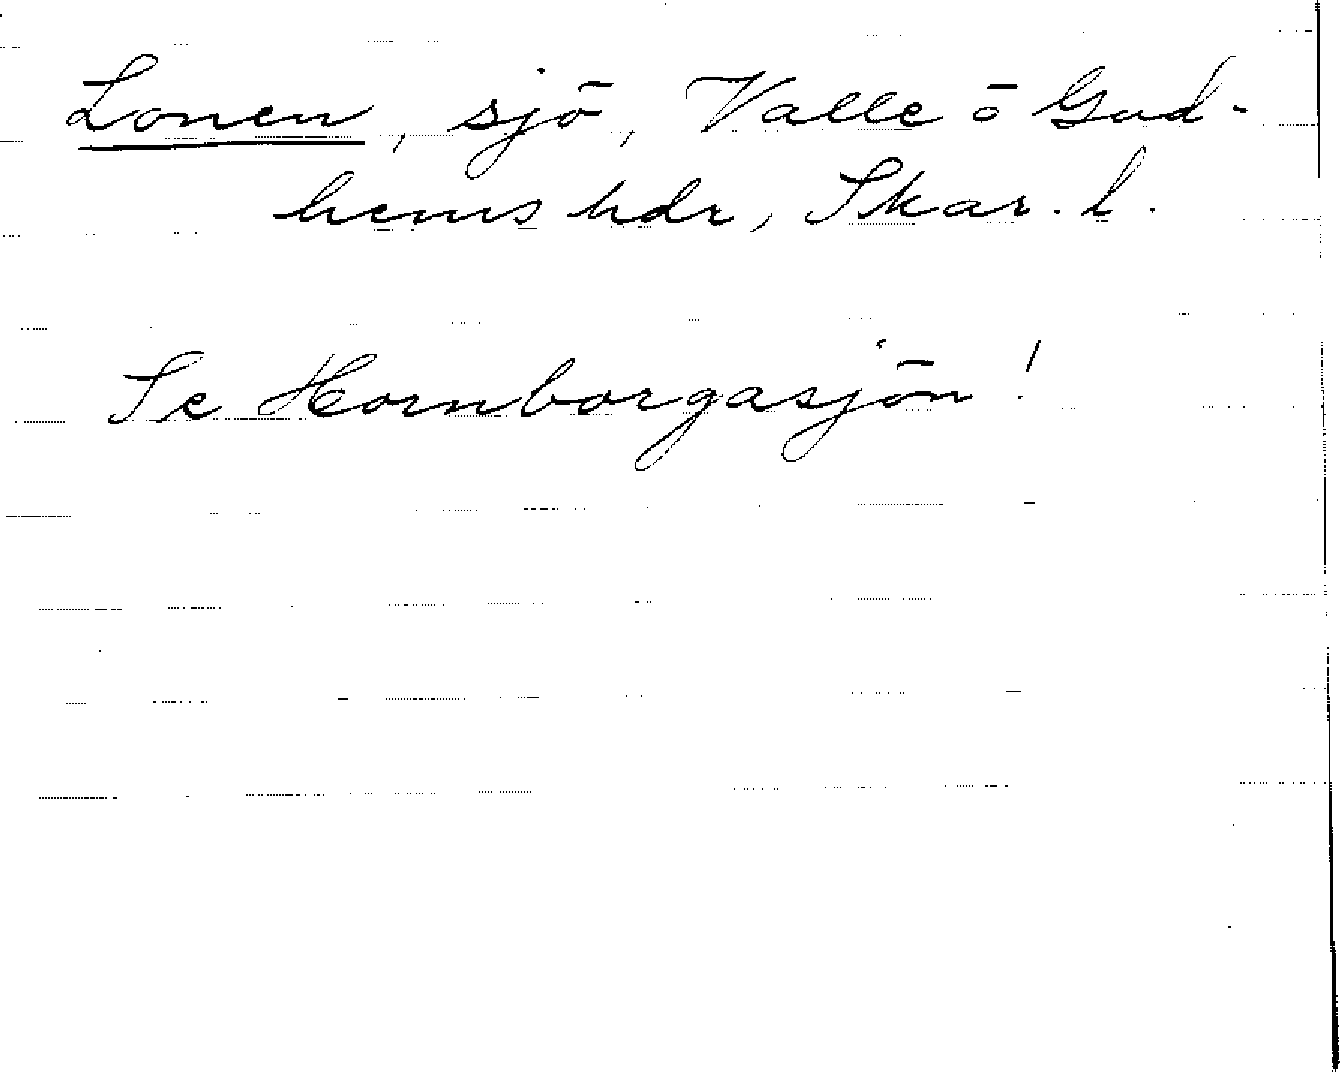 Lonen, sjö, Valle ö Gud-
hems hdr, Skar. l.
Se Hornborgasjön!